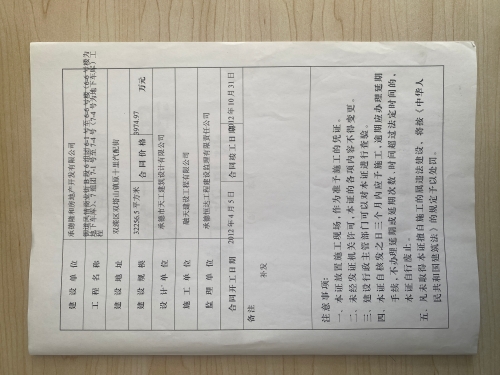 建设单位 承德隆和房地产开发有限公司
工程名称
建设地址 双滦区双塔山镇原十里汽配街
建设规模 32256.5平方米 合同价格 3974.97 万元
设计单位 承德市天工建筑设计有限公司
施工单位 融天建设工程有限公司
监理单位 承德恒达工程建设监理有限责任公司
合同开工日期 2012年4月5日 合同竣工日期 2012年10月31日
备注
补发
注意事项：
一、本证放置施工现场，作为准予施工的凭证。
二、未经发证机关许可，本证的各项内容不得变更。
三、建设行政主管部门可以对本证进行查验。
四、本证自核发之日三个月内应予施工，逾期应办理延期
手续，不办理延期或延期次数、时间超过法定时间的，
本证自行废止。
五、凡未取得本证擅自施工的属违法建设，将按《中华人
民共和国建筑法》的规定予以处罚。